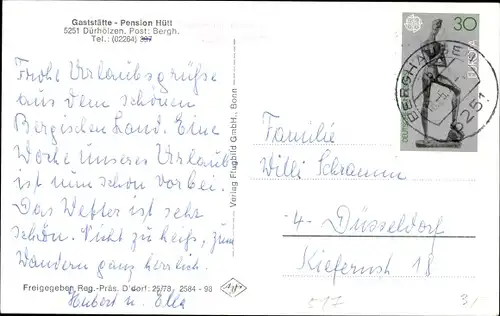 Gaststätte - Pension Hütt
5251 Dürhölzen. Post: Bergh.
Tel.: (02264) 387
Frohe Urlaubsgrüße
aus dem schönen
Bergischen Land. Eine
Woche unseres Urlaub
ist nun schon vorbei.
Das Wetter ist sehr
schön. Nicht zu heiß, zum
Wandern ganz herrlich.
Hubert u. Ella
Freigegeben Reg.-Präs. D'dorf: 25/78 2584 - 98
Verlag Flugbild GmbH., Bonn
30
BERGHAUSEN
5251
Familie
Willi Schramm
-4- Düsseldorf
Kiefernst 18
517
3/